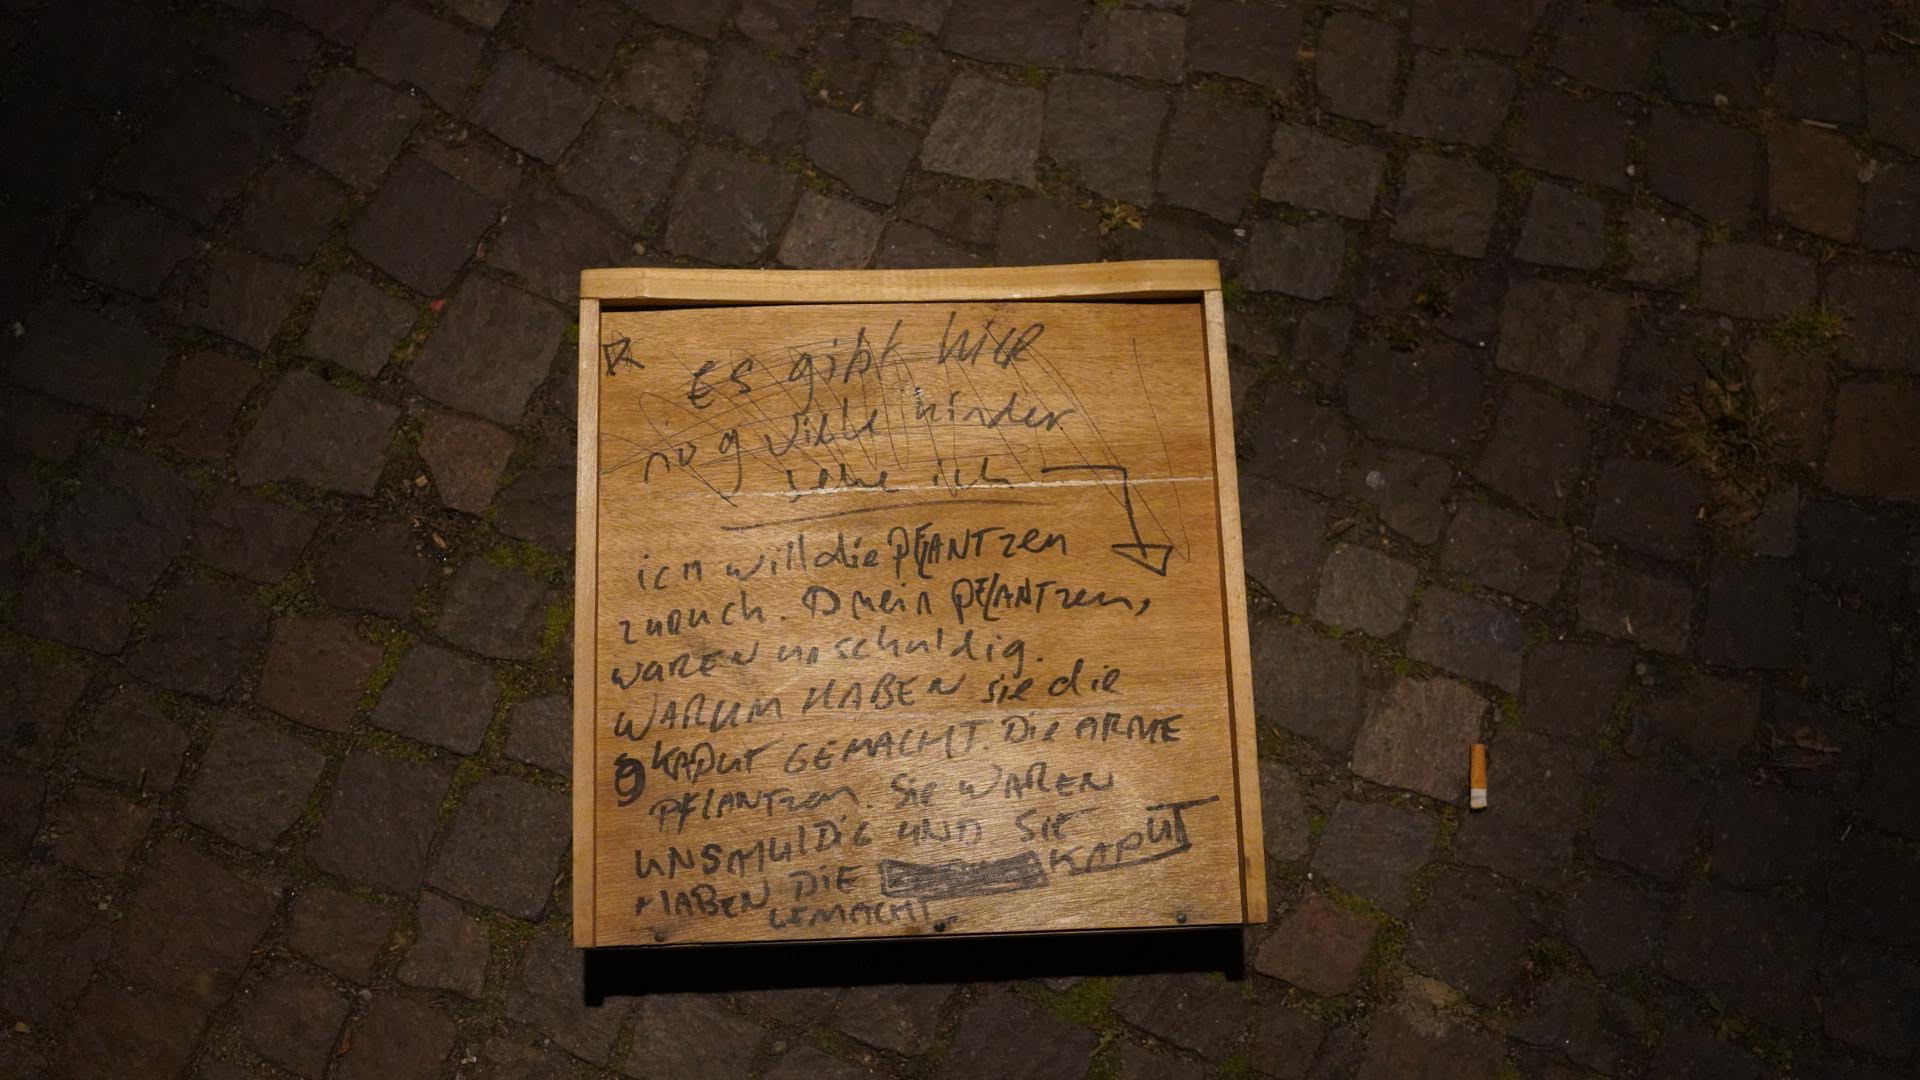 Es gibt hier
nog ville kinder
sehe ich
ich will die PflANTzen
zuRuch. Dmein PflANTzen,
waren unschuldig.
WARUM HABEN sie die
KAPUT GEMACHT. Die ARME
PFLANTzen. Sie WAREN
UNSHULDIG UND SIE
HABEN DIE KAPUT
GEMACHT.